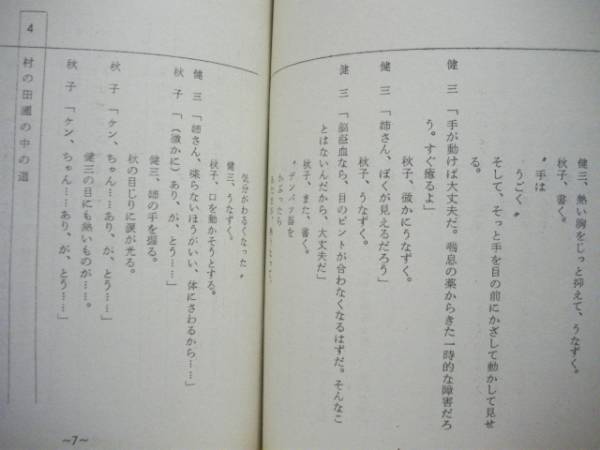 健三、熱い胸をじっと抑えて、うなずく。
秋子、書く。
〝手は
うごく〟
そして、そっと手を目の前にかざして動かして見せ
る。
健三「手が動けば大丈夫だ。喘息の薬からきた一時的な障害だろ
う。すぐ癒るよ」
秋子、微かにうなずく。
健三「姉さん、ぼくが見えるだろう」
秋子、うなずく。
健三「脳溢血なら、目のピントが合わなくなるはずだ。そんなこ
とはないんだから、大丈夫だ」
秋子、また、書く。
〝デンパツ盆を
かぶったら
気分がわるくなった〟
健三、うなずく。
秋子、口を動かそうとする。
健三「姉さん、喋らないほうがいい、体にさわるから……」
秋子「（微かに）あり、が、とう……」
健三、姉の手を握る。
秋の目じりに涙が光る。
秋子「ケン、ちゃん……あり、が、とう……」
健三の目にも熱いものが……。
秋子「ケン、ちゃん……あり、が、とう……」
4
村の田圃の中の道
〜7〜